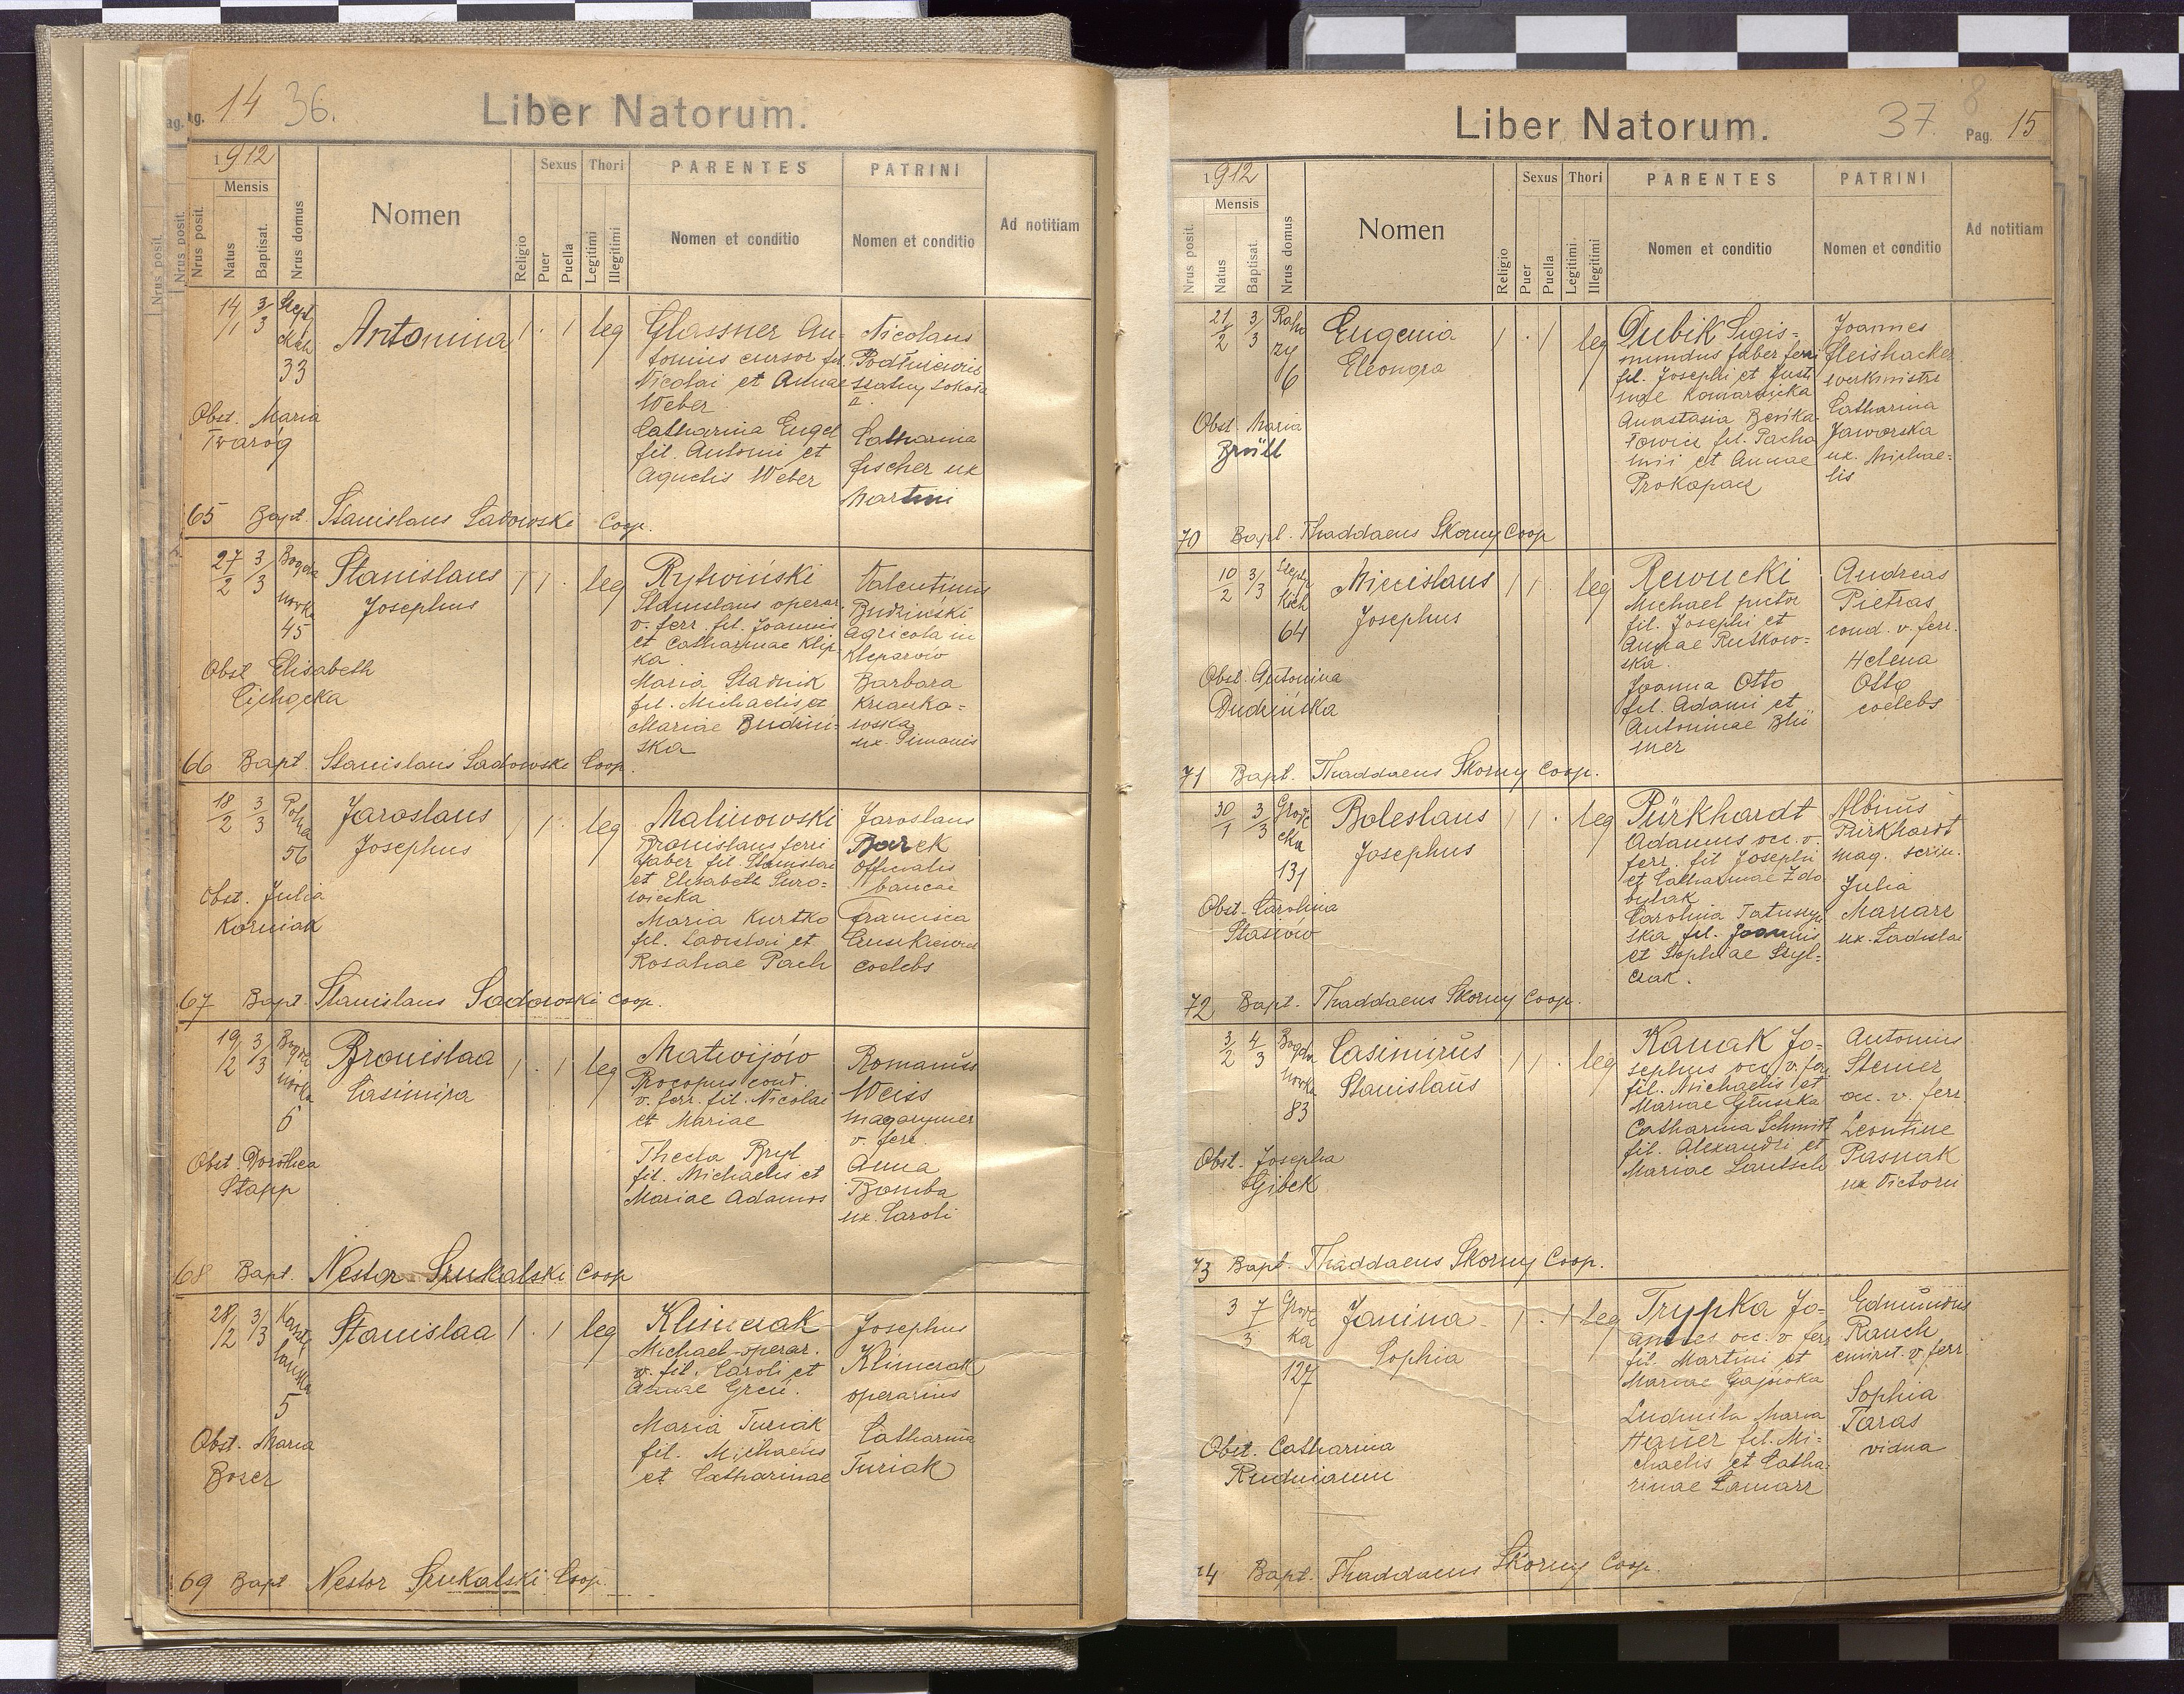 Pag. 14 36.
Liber Natorum.
1912
Mensis
Nrus posit.
Natus
Baptisat.
Nrus domus
Nomen
Religio
Sexus
Puer
Puella
Thori
Legitimi
Illegitimi
PARENTES
Nomen et conditio
PATRINI
Nomen et conditio
Ad notitiam
14/1 3/3
33
Antonina
1 · 1 leg
Glassner An-
tonius cursor fil.
Nicolai et Annae
Weber
Catharina Engel
fil. Antonii et
Agnetis Weber
Nicolaus
II.
Catharina
Fischer ux
Martini
Obst. Maria
Twaróg
65 Bapt. Stanislaus Sadowski Coop.
27/2 3/3
Bogda
nówka
45
Stanislaus
Josephus
1 1 · leg
Rytwiński
Stanislaus operar.
v. ferr. fil. Joannis
et Catharinae Klip-
ka.
Maria Stadnik
fil. Michaelis et
Mariae Budziń-
ska
Valentinus
Budziński
agricola in
Kleparów
Barbara
ux. Simonis
Obst Elisabeth
66 Bapt. Stanislaus Sadowski Coop.
18/2 3/3
56
Jaroslaus
Josephus
1 1 · leg
Malinowski
Bronislaus ferri
faber fil. Stanislai
et Elisabeth Suro-
wiecka
Maria Kurtko
fil. Ladislai et
Rosaliae Pach
Jaroslaus
Barek
officialis
bancae
Francisca
coelebs
Obst. Julia
Korniak
67 Bapt. Stanislaus Sadowski Coop.
19/2 3/3
Bogda
nówka
6
Bronislaa
Casimira
1 · 1 leg
Matwijów
Procopus cond.
v. ferr. fil. Nicolai
et Mariae
Thecla Bryl
fil. Michaelis et
Mariae Adamos
Romanus
Weiss
magazyner
v. ferr.
Anna
Bomba
ux. Caroli
Obst. Dorothea
Stapp
68 Bapt. Nestor Szukalski Coop
28/2 3/3
5
Stanislaa
1 · 1 leg
Klimczak
Michael operar.
v. fil. Caroli et
Annae Greń.
Maria Turiak
fil. Michaelis
et Catharinae
Josephus
Klimczak
operarius
Catharina
Turiak
Obst. Maria
Boser
69 Bapt Nestor Szukalski Coop.
Liber Natorum.
37. 8 Pag. 15
1912
Mensis
Nrus posit.
Natus
Baptisat.
Nrus domus
Nomen
Religio
Sexus
Puer
Puella
Thori
Legitimi.
Illegitimi
PARENTES
Nomen et conditio
PATRINI
Nomen et conditio
Ad notitiam
21/2 3/3
6
Eugenia
Eleonora
1 · 1 leg
Dubik Sigis-
mundus faber ferri
fil. Josephi et Justi
nae Komarnicka
Anastasia
fil. Pacho
mii et Annae
Prokopacz
Joannes
Fleishacker
werkmistrz
Catharina
Jaworska
ux. Michae-
lis
Obst. Maria
Brüll
70 Bapt. Thaddaeus Skorny Coop
10/2 3/3
64
Miecislaus
Josephus
1 1 · leg
Rewucki
Michael pictor
fil. Josephi et
Annae Rutkow-
ska.
Joanna Otto
fil. Adami et
Antoninae Blü
mer
Andreas
Pietras
cond. v. ferr.
Helena
Otto
coelebs
Obst. Antonina
Dudzińska
71 Bapt. Thaddaeus Skorny Coop.
30/1 3/3
Grode
cka
131
Boleslaus
Josephus
1 1 · leg
Pürkhardt
Adamus occ. v.
ferr. fil Josephi
et Catharinae Zdo
bylak
Carolina
ska fil. Joannis
et Sophiae Szyl-
czak.
Albinus
Pürkhardt
mag. scrin.
Julia
Mariarz
ux. Ladislai
Obst. Carolina
Stasiów
72 Bapt. Thaddaeus Skorny Coop.
3/2 4/3
Bogda
nówka
83
Casimirus
Stanislaus
1 1 · leg
Kanak Jo-
sephus occ. v. ferr
fil. Michaelis et
Mariae Głuszka
Catharina Schmidt
fil. Alexandri et
Mariae Lautsch
Antonius
Steiner
occ. v. ferr.
Leontine
Pasnak
ux Victorii
Obst. Josepha
Gibek
73 Bapt. Thaddaeus Skorny Coop.
3 7/3
Grode
ka
127
Janina
Sophia
1 · 1 leg
Trypka Jo-
annes occ. v ferr
fil. Martini et
Mariae Gajowka
Ludmila Maria
Hauer fil. Mi-
chaelis et Catha-
rinae Lamarz
Edmundus
Rauch
emerit. v. ferr
Sophia
Taras
vidua
Obst. Catharina
74 Bapt. Thaddaeus Skorny Coop.